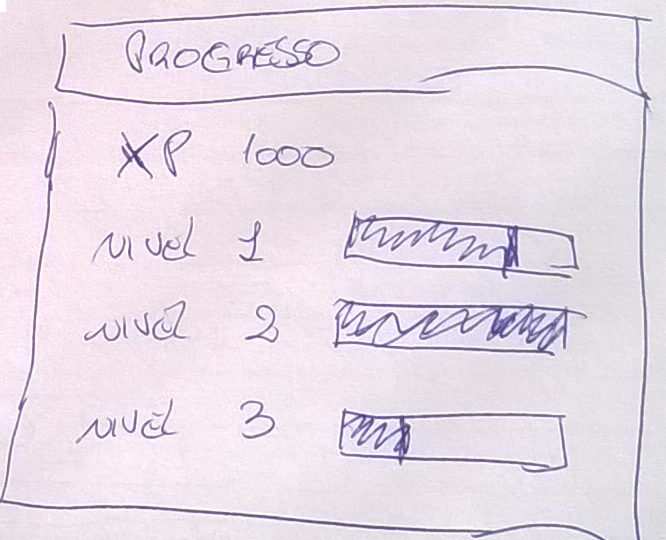 PROGRESSO
XP 1000
NIVEL 1
NIVEL 2
NIVEL 3